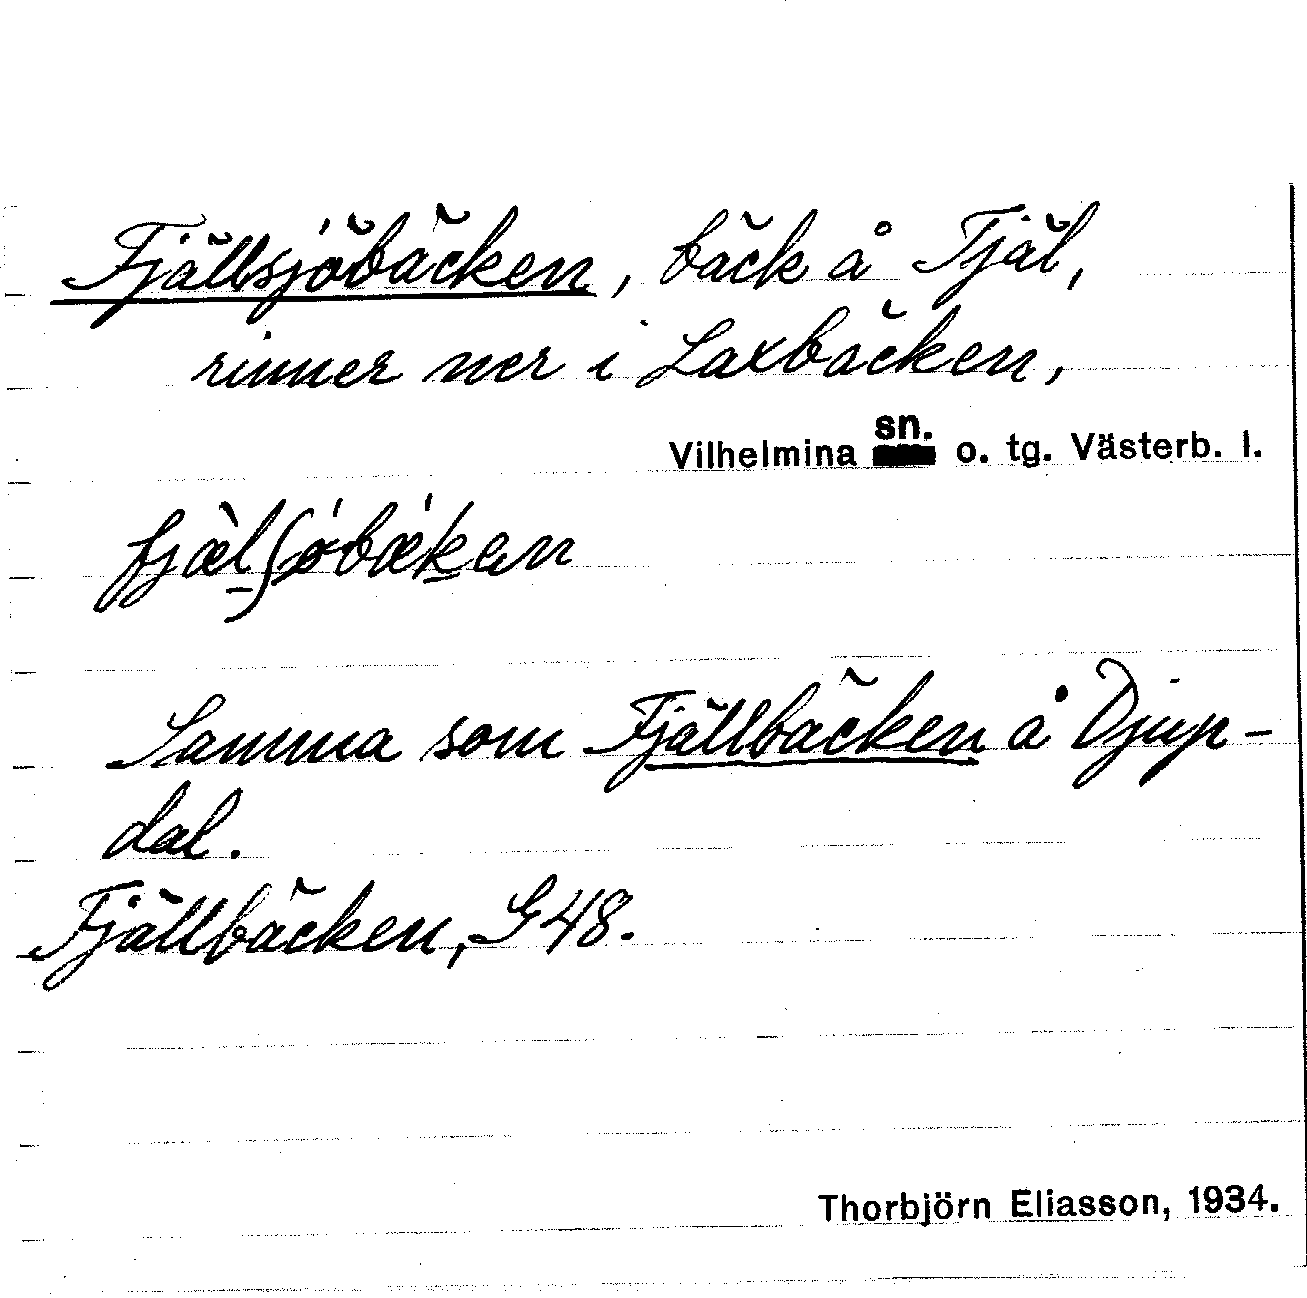 Fjällsjöbäcken, bäck å Tjäl,
rinner ner i Laxbäcken,
Vilhelmina sn. o. tg. Västerb. l.
fjæ̀lʃǿbǽkan
Samma som Fjällbäcken å Djup-
dal.
Fjällbäcken, G48.
Thorbjörn Eliasson, 1934.